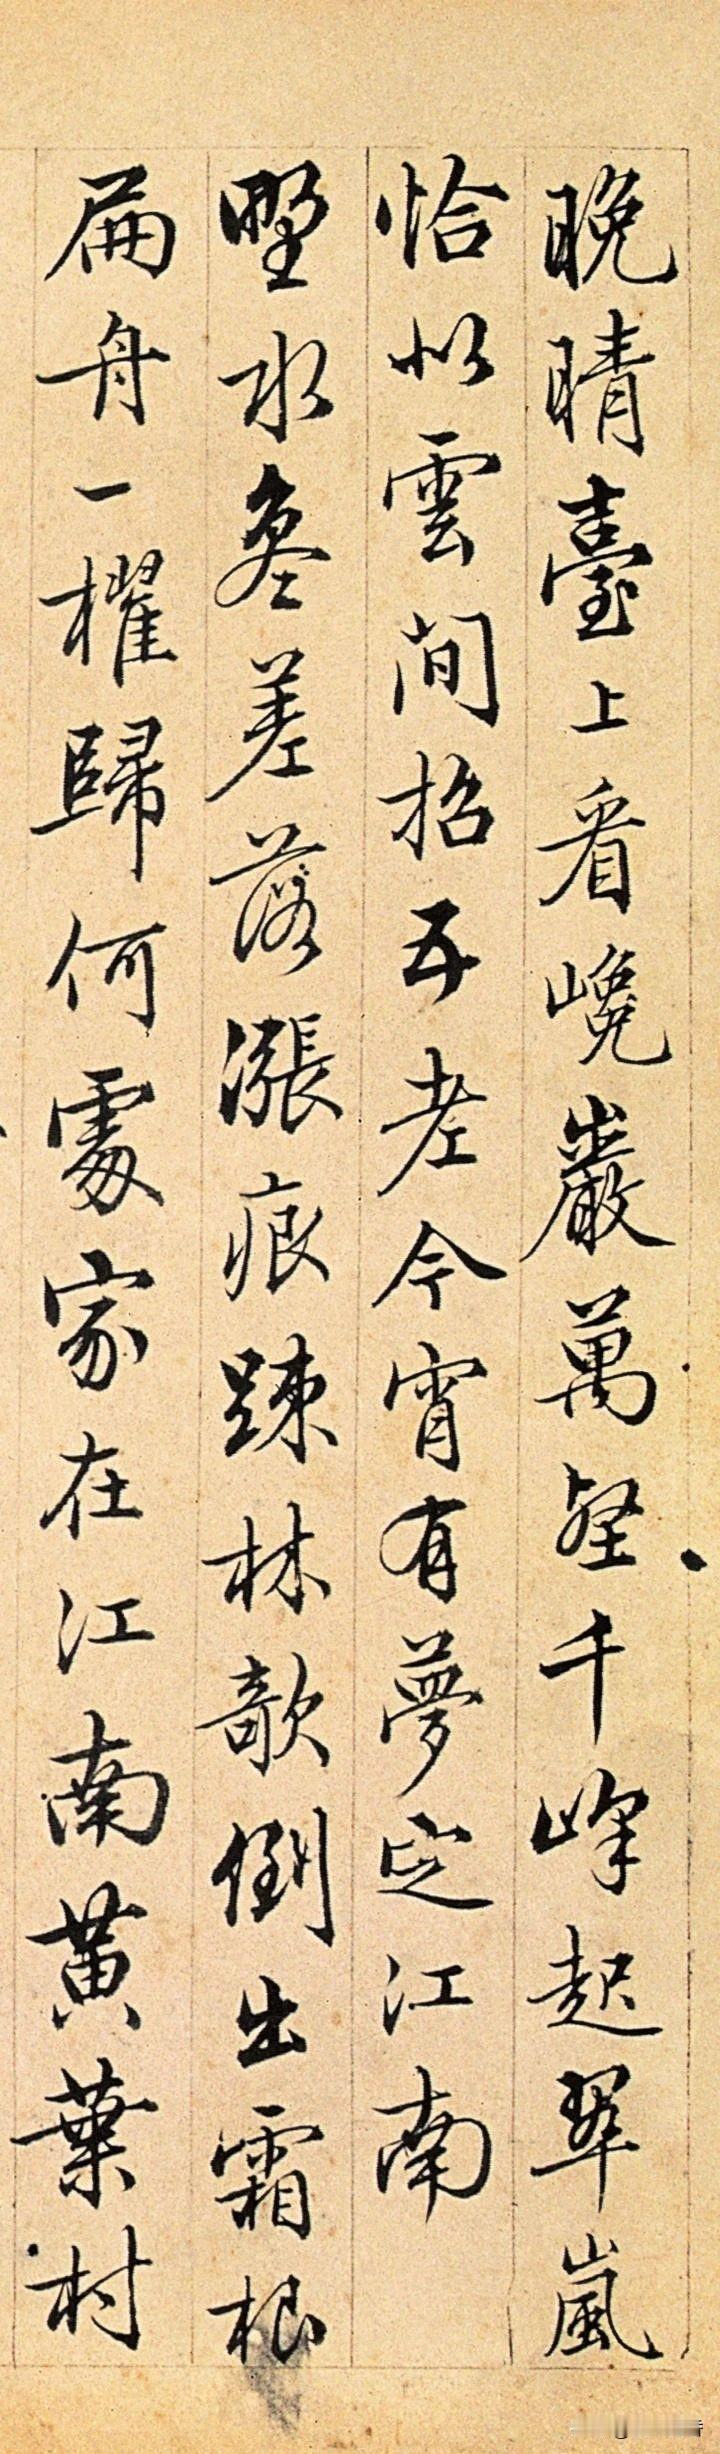 晚晴臺上看巉巖萬壑千峰起翠嵐
恰似雲間招五老今宵有夢定江南
野水參差落漲痕疎林欹倒出霜根
扁舟一櫂歸何處家在江南黃葉村